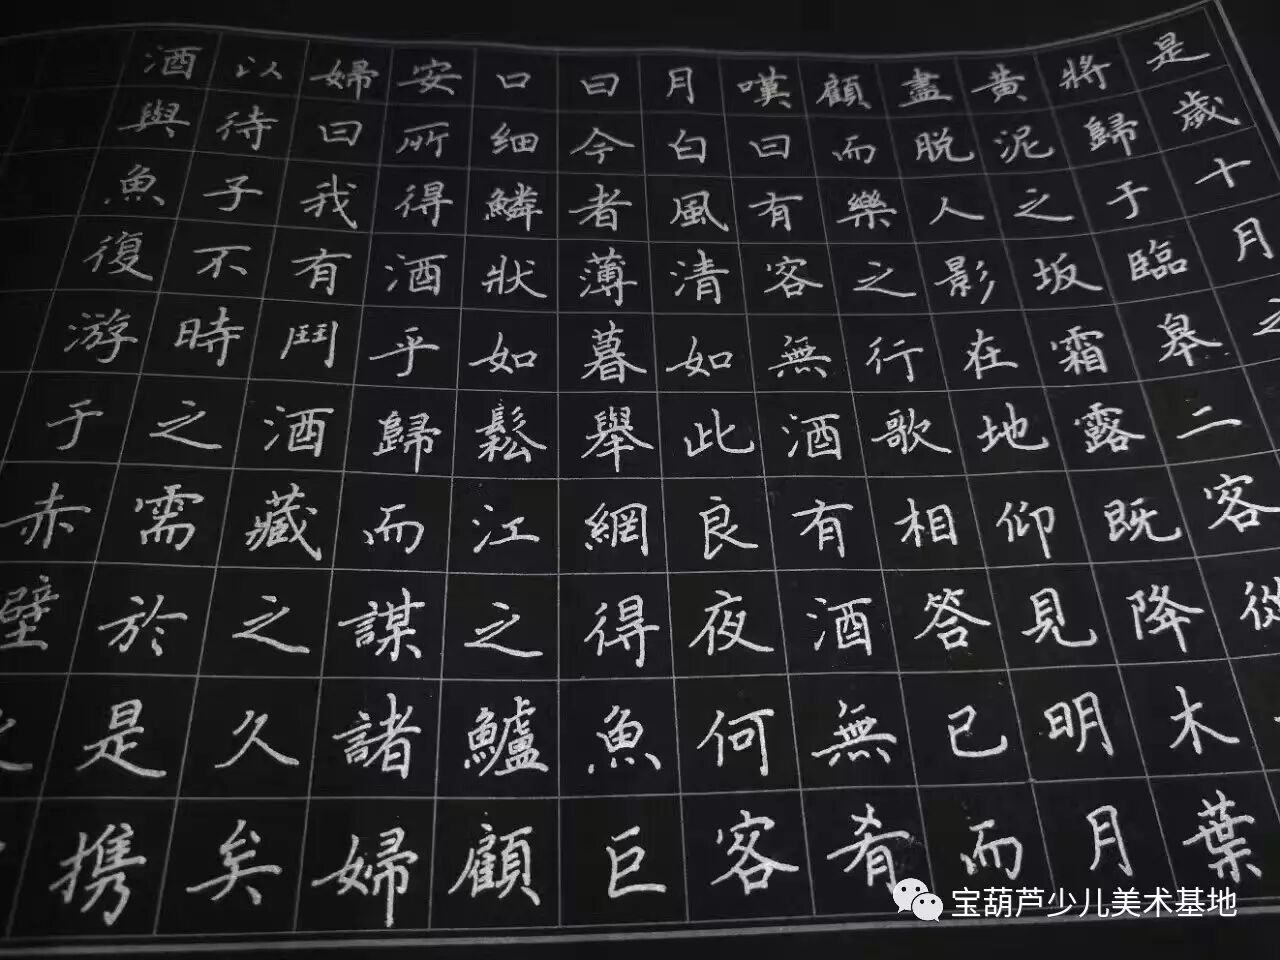 是歲十月之
將歸于臨皋二客從
黃泥之坂霜露既降木葉
盡脫人影在地仰見明月
顧而樂之行歌相答已而
嘆曰有客無酒有酒無肴
月白風清如此良夜何客
曰今者薄暮舉網得魚巨
口細鱗狀如鬆江之鱸顧
安所得酒乎歸而謀諸婦
婦曰我有鬥酒藏之久矣
以待子不時之需於是携
酒與魚復游于赤壁
宝葫芦少儿美术基地